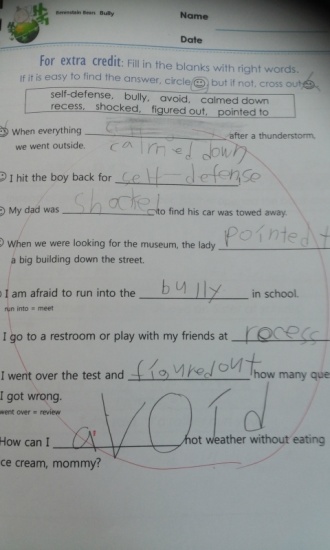 Berenstain Bears Bully
Name
Date
For extra credit: Fill in the blanks with right words.
If it is easy to find the answer, circle but if not, cross out
self-defense, bully, avoid, calmed down
recess, shocked, figured out, pointed to
When everything calmed down after a thunderstorm,
we went outside.
I hit the boy back for self-defense
My dad was shocked to find his car was towed away.
When we were looking for the museum, the lady pointed t
a big building down the street.
I am afraid to run into the bully in school.
run into = meet
I go to a restroom or play with my friends at recess
I went over the test and figured out how many que
I got wrong.
went over = review
How can I aVOId hot weather without eating
ce cream, mommy?